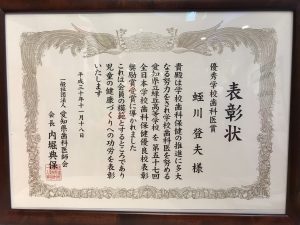 表彰状
優秀学校歯科医賞
蛭川登夫様
貴殿は学校歯科保健の推進に多大
なる努力をされ学校歯科医を務める
愛知県立緑丘高等学校を第五十七回
全日本学校歯科保健優良校表彰
奨励賞受賞に導かれました
これは会員の模範とするところであり
児童の健康づくりへの功労を表彰
いたします
平成三十年十一月十八日
一般社団法人 愛知県歯科医師会
会長 内堀典保